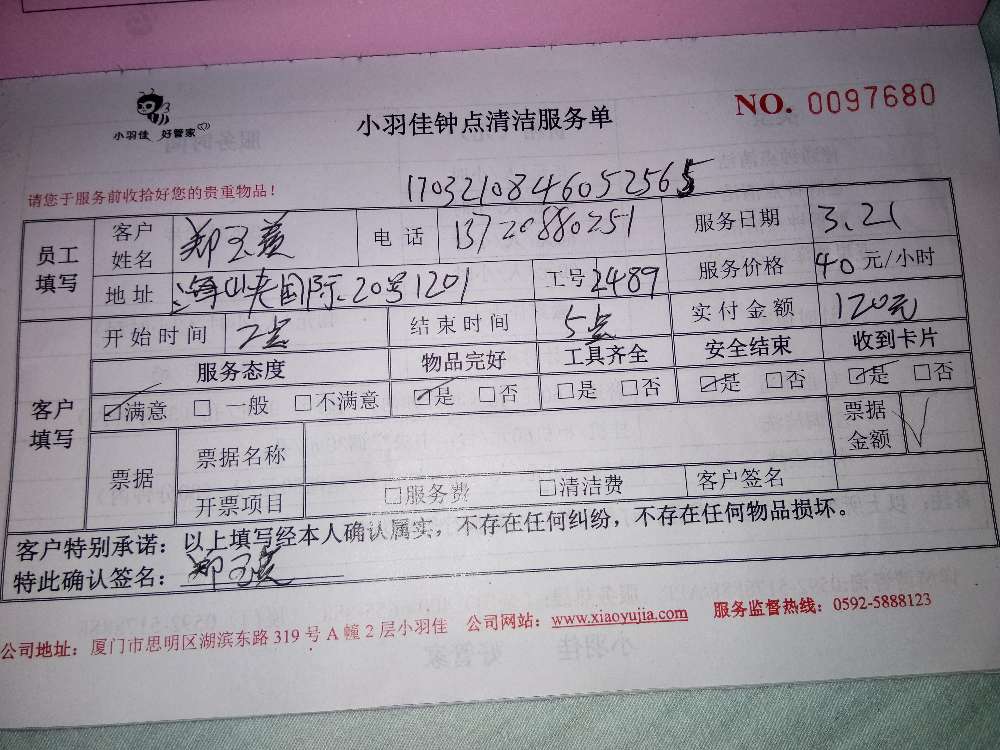 小羽佳 好管家
小羽佳钟点清洁服务单
NO. 0097680
请您于服务前收拾好您的贵重物品！
17032108460525565
员工填写 客户姓名 郑玉 电话 13720880251 服务日期 3.21
地址 国际20号1201 工号 2489 服务价格 40 元/小时
客户填写 开始时间 2点 结束时间 5点 实付金额 120元
服务态度 物品完好 工具齐全 安全结束 收到卡片
☑满意 □一般 □不满意 ☑是 □否 □是 □否 ☑是 □否 ☑是 □否
票据 票据名称 票据金额
开票项目 □服务费 □清洁费 客户签名
客户特别承诺：以上填写经本人确认属实，不存在任何纠纷，不存在任何物品损坏。
特此确认签名：郑玉
公司地址：厦门市思明区湖滨东路 319 号 A 幢 2 层小羽佳 公司网站：www.xiaoyujia.com 服务监督热线：0592-5888123